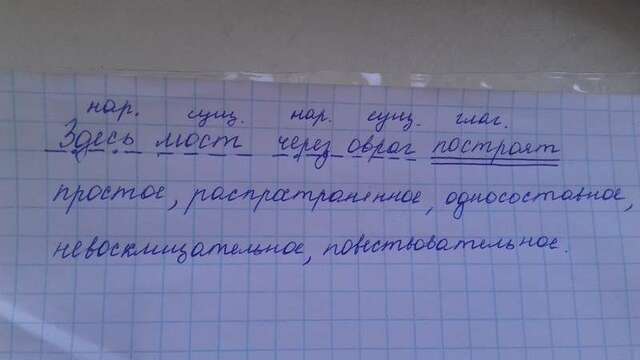 нар. сущ. нар. сущ. глаг.
Здесь мост через овраг построят
простое, распратраненное, односоставное,
невосклицательное, повествовательное.